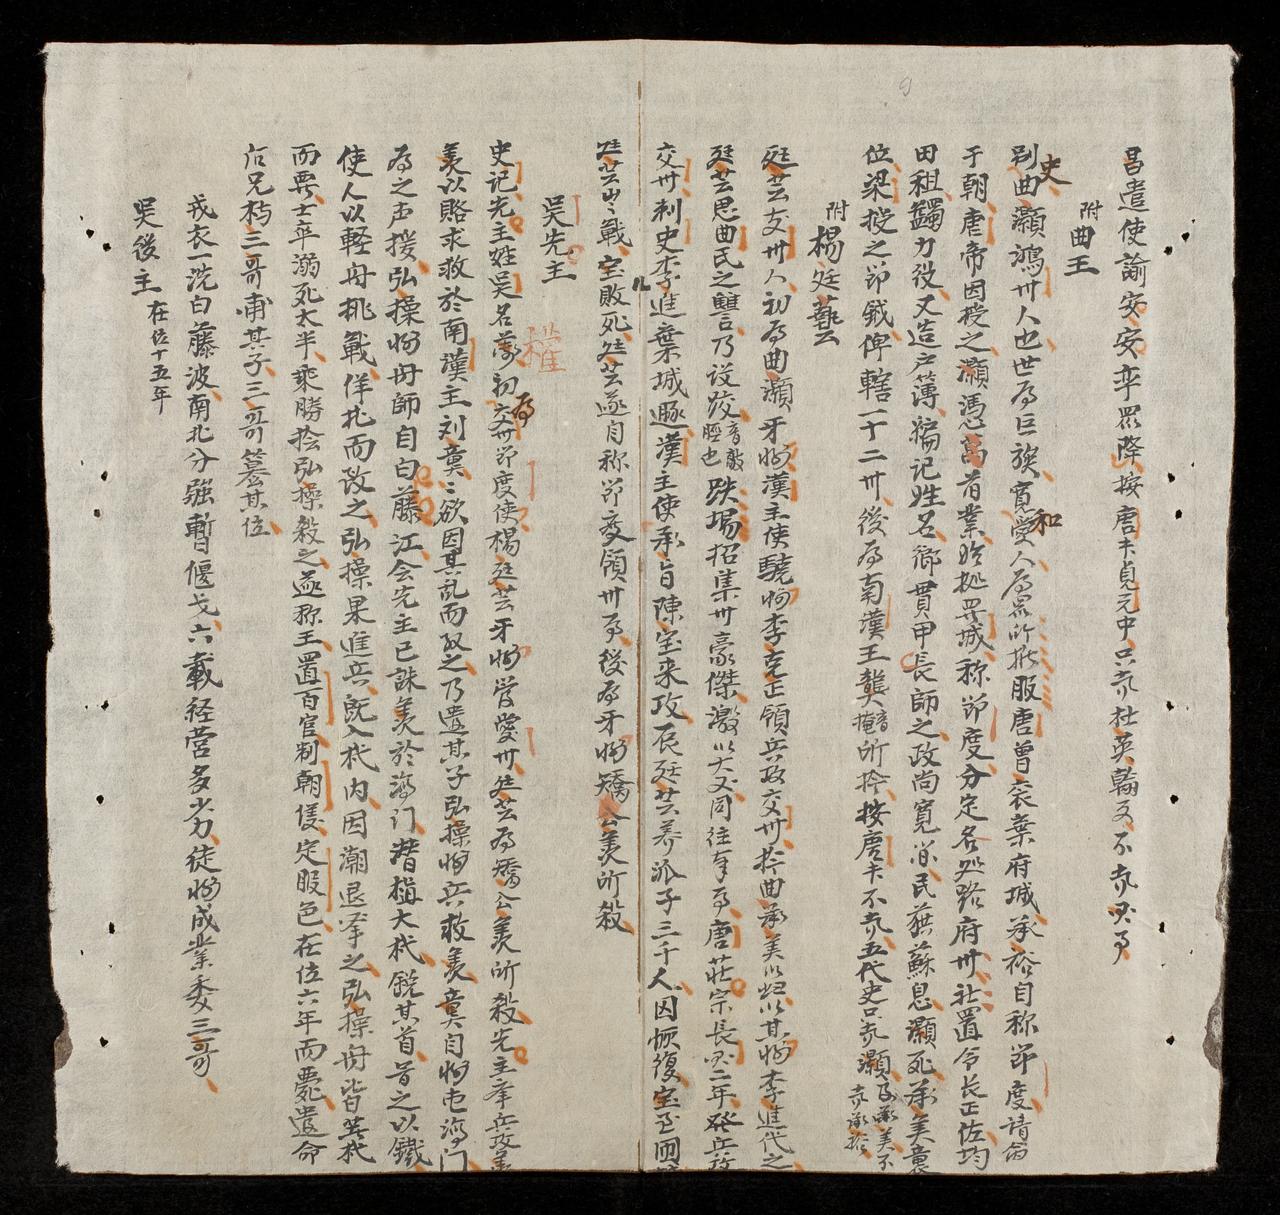 昌遣使諭安安率眾降按唐書貞元中只有杜英翰又不有其事
附曲王
史別曲灝鴻州人也世為巨族寬和愛人為眾所推服唐曾袞棄府城承裕自称節度請命
于朝唐帝因授之灝憑舊業始拠羅城称節度分定各処路府州社置令長正佐均
田租蠲力役又造户簿編记姓名鄉貫甲長師之政尚寬簡民獲蘇息灝死承美襲
位梁授之節鉞俾轄一十二州後為南漢王龔音掩所擒按唐書不有五代史只有灝及承美不有承裕
附楊廷藝
廷芸交州人初為曲灝牙將漢主使驍將李克正領兵攻交州擒曲承美以歸以其將李進代之
廷芸思曲氏之讐乃設跤音敲脛也跌場招集州豪傑激以大義同往有為唐莊宗長興二年發兵攻
交州刺史李進棄城遯漢主使承旨陳宝来攻辰廷芸养派子三千人因恢復宝至囬
廷芸出戰宝敗死廷芸遂自称節度領州事後為牙將矯公羨所殺
吳先主
史记先主姓吳名權初為交州節度使楊廷芸牙將管愛州廷芸為矯公羨所殺先主奉兵攻羨
羨以賂求救於南漢主刘龑〻欲因其乱而取之乃遣其子弘操將兵救羨龑自將屯海门
為之声援弘操將舟師自白藤江会先主已誅羨於海门潜植大杙銳其首冒之以鐵
使人以輕舟挑戰佯北而致之弘操果進兵既入杙内因潮退擊之弘操舟皆茫杙
而覆士卒溺死太半乘勝擒弘操殺之遂称王置百官制朝儀定服色在位六年而薨遺命
后兄杨三哥輔其子三哥篡其位
戎衣一洗白藤波南北分強暫偃戈六載経营多少力徒將成業委三哥
吳後主在位十五年